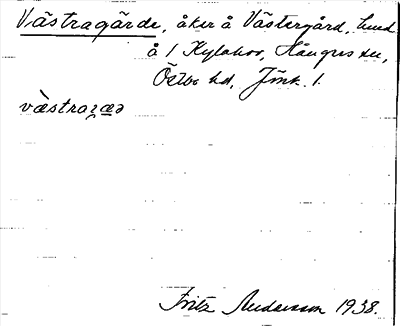 Västragärde, åker å Västergård, Lund
å 1 Kylahov, Hånger sn,
Östbo hd, Jönk. l.
västraɡæ̲ə
Fritz Andersson 1938.